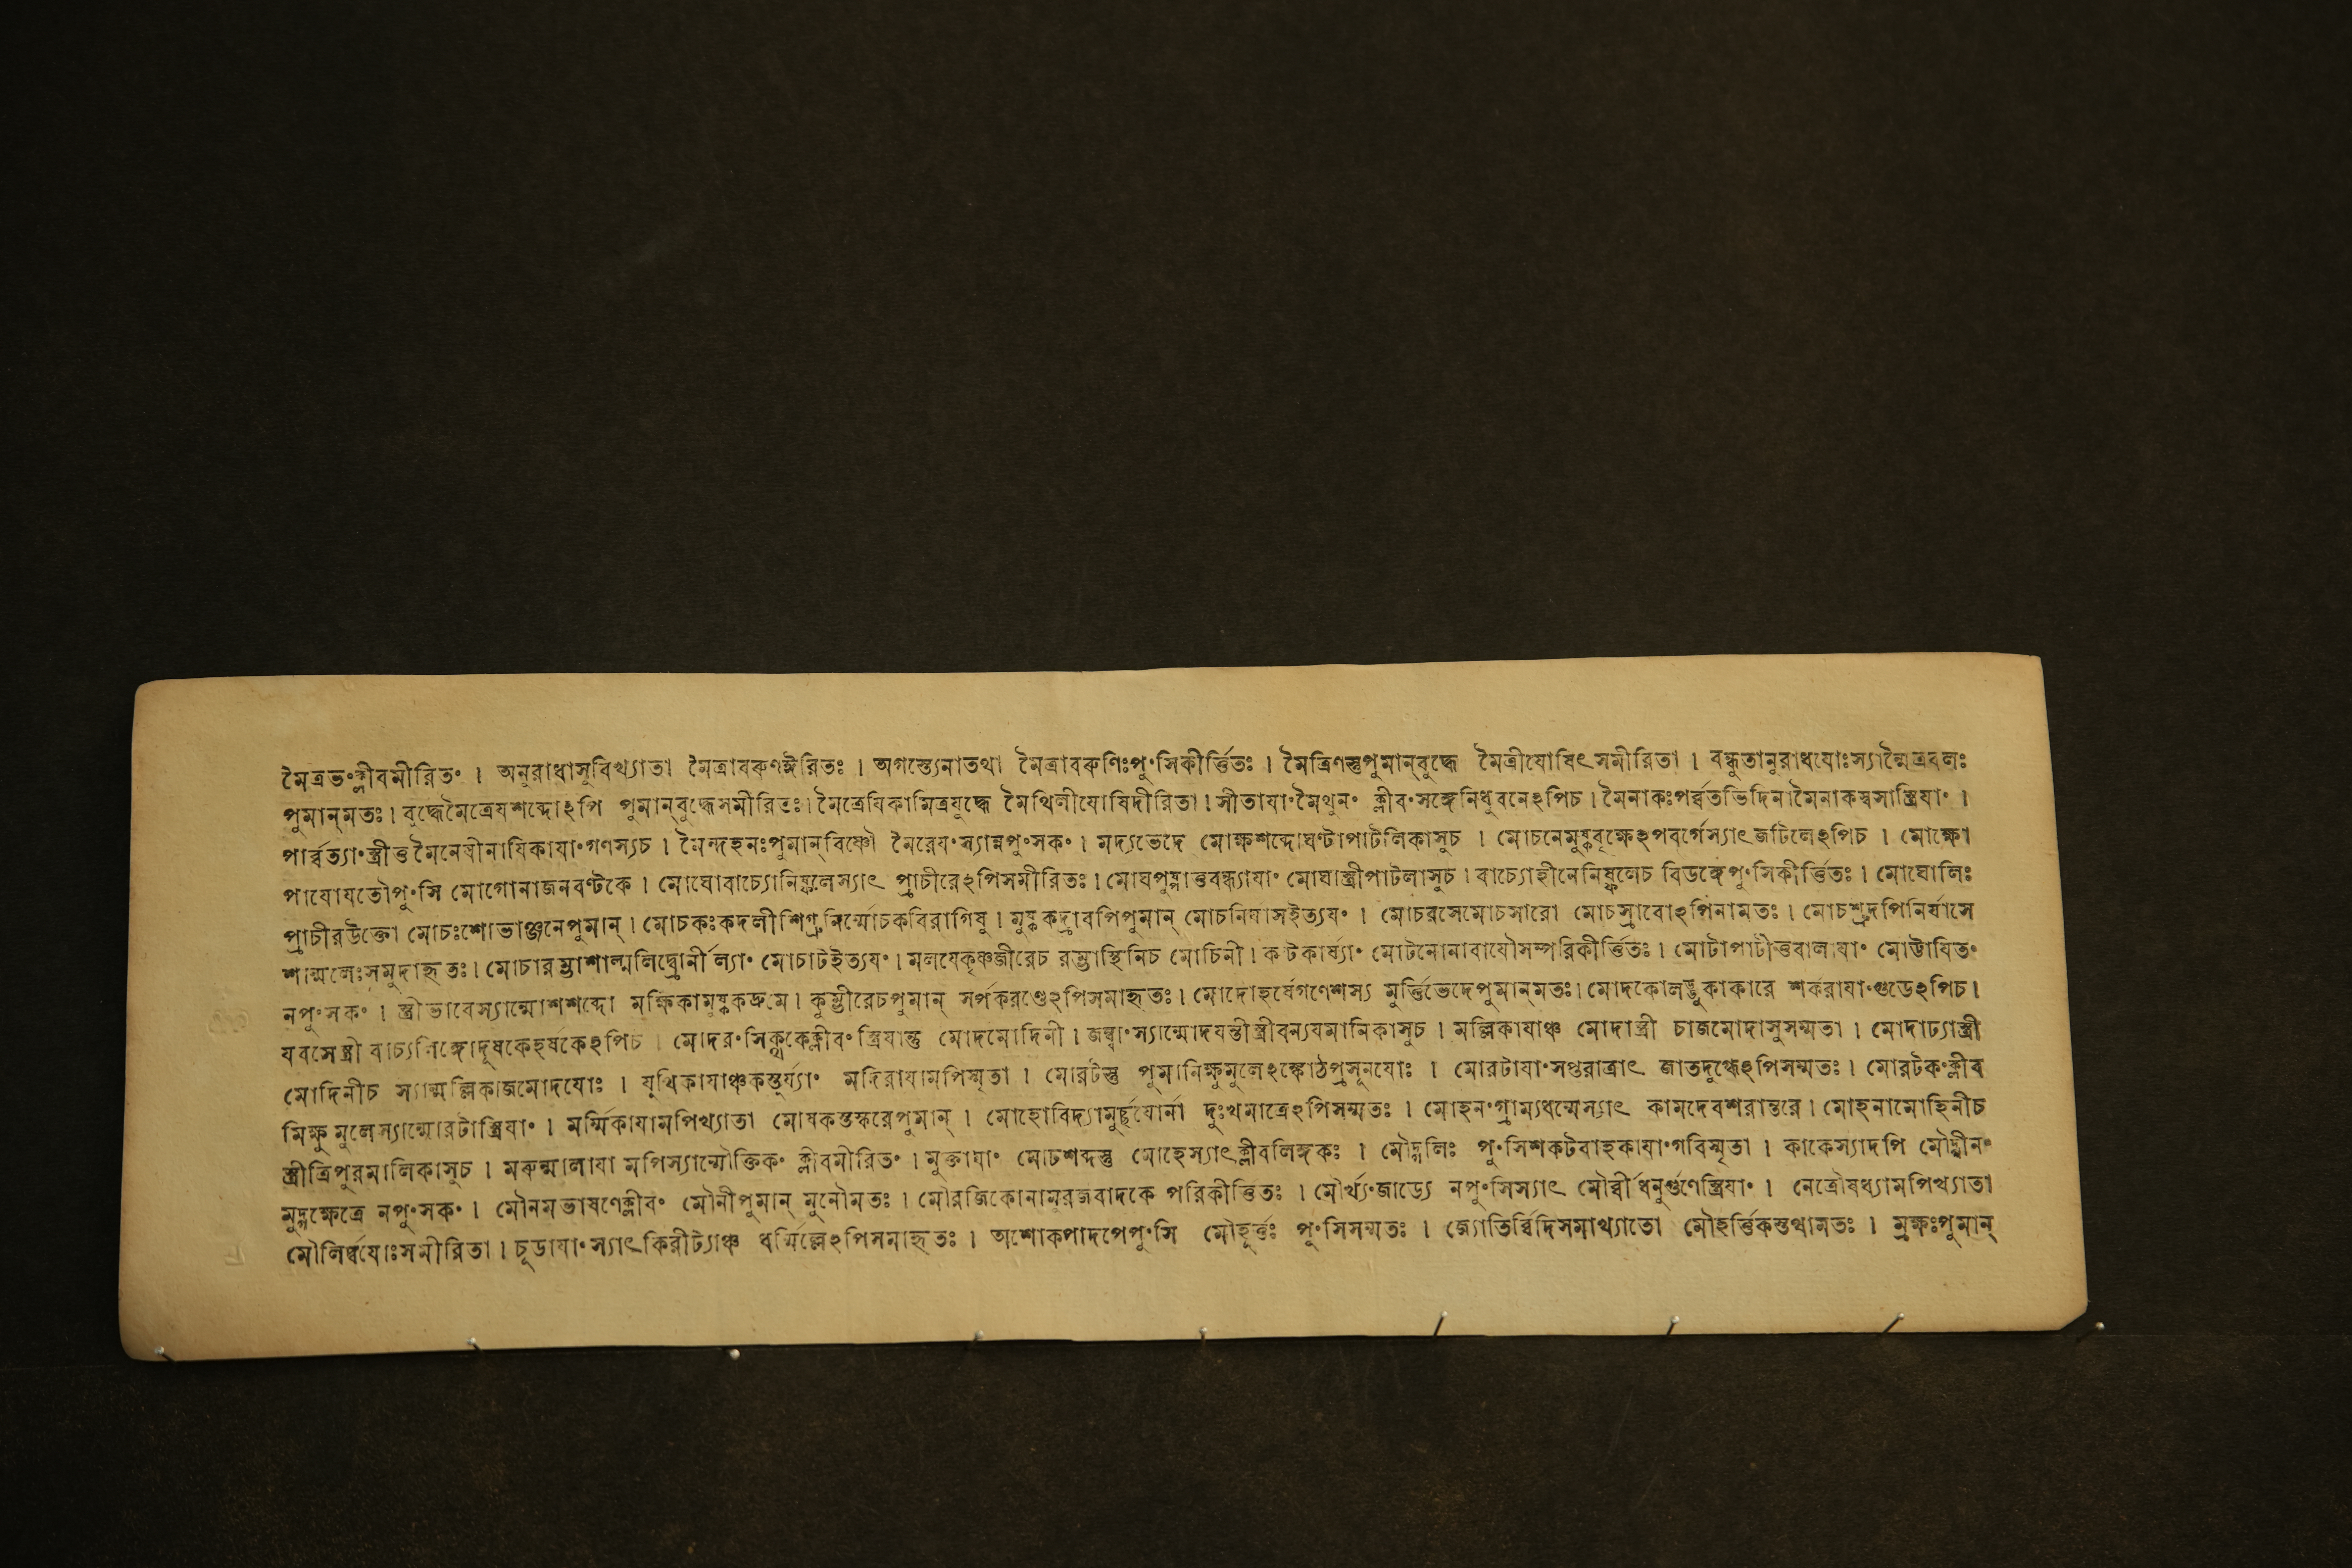 মৈত্রভ°ক্লীবমীরিত° । অনুরাধাসুবিখ্যাতা মৈত্রাবরুণঈরিতঃ । অগস্ত্যেনাতথা মৈত্রাবরুণিঃপু°সিকীর্ত্তিতঃ । মৈত্রিণস্তুপুমান্‌বুদ্ধে মৈত্রীযোষিৎসমীরিতা । বন্ধুতানুরাধযোঃস্যান্মৈত্রবলঃ
পুমান্‌মতঃ । বুদ্ধেমৈত্রেযশব্দোঽপি পুমান্‌বুদ্ধেসমীরিতঃ । মৈত্রেযিকামিত্রযুদ্ধে মৈথিলীযোষিদীরিতা । সীতাযা°মৈথুন° ক্লীব°সঙ্গেনিধুবনেঽপিচ । মৈনাকঃপর্ব্বতভিদিনামৈনাকস্বসাস্ত্রিযা° ।
পার্ব্বত্যা°স্ত্রীত্ত মৈনেযীনাযিকাযা°গণস্যচ । মৈন্দহনঃপুমান্‌বিষ্ণৌ মৈরেয°স্যান্নপু°সক° । মদ্যভেদে মোক্ষশব্দোঘণ্টাপাটলিকাসুচ । মোচনেমুষ্কবৃক্ষেঽপবর্গেস্যাৎজটিলেঽপিচ । মোক্ষো
পাযোযতৌপু°সি মোগোনাজনবণ্টকে । মোঘোবাচ্যোনিষ্ফলেস্যাৎ প্রাচীরেঽপিসমীরিতঃ । মোঘপুষ্পাত্তবন্ধ্যাযা° মোঘাস্ত্রীপাটলাসুচ । বাচ্যোহীনেনিষ্ফলেচ বিডঙ্গেপু°সিকীর্ত্তিতঃ । মোঘোলিঃ
প্রাচীরউক্তো মোচঃশোভাঞ্জনেপুমান্‌ । মোচকঃকদলীশিগ্রুনির্ম্মোচকবিরাগিষু । মুষ্ককদ্রাবপিপুমান্‌ মোচনির্যাসইত্যয° । মোচরসেমোচসারো মোচস্রাবোঽপিনামতঃ । মোচশ্রুদপিনির্যাসে
শাল্মলেঃসমুদাহৃতঃ । মোচারম্ভাশাল্মলিদ্ব্রোর্নীল্যা° মোচাটইত্যয° । মলযেকৃষ্ণজীরেচ রম্ভাস্থিনিচ মোচিনী । কটকার্য্যা° মোটনোনাবাযৌসম্পরিকীর্ত্তিতঃ । মোটাপাটীত্তবালাযা° মোট্টাযিত°
নপু°সক° । স্ত্রীভাবেস্যান্মোশশব্দো মক্ষিকামুষ্ককদ্রুমে । কুম্ভীরেচপুমান্‌ সর্পকরণ্ডেঽপিসমাহৃতঃ । মোদোহর্ষেগণেশস্য মুর্ত্তিভেদেপুমান্‌মতঃ । মোদকোলড্ডুকাকারে শর্করাযা°গুডেঽপিচ ।
যবসেস্ত্রী বাচ্যলিঙ্গোদূষকেহর্ষকেঽপিচ । মোদর°সিক্থকেক্লীব° স্ত্রিযান্তু মোদমোদিনী । জম্ব্বা°স্যান্মোদযন্তীস্ত্রীবন্যযমানিকাসুচ । মল্লিকাযাঞ্চ মোদাস্ত্রী চাজমোদাসুসম্মতা । মোদাঢ্যাস্ত্রী
মোদিনীচ স্যান্মল্লিকাজমোদযোঃ । যুথিকাযাঞ্চকস্তুর্য্যা° মদিরাযামপিস্মৃতা । মোরটস্তু পুমানিক্ষুমুলেঽঙ্কোঠপ্রসূনযোঃ । মোরটাযা°সপ্তরাত্রাৎ জাতদুগ্ধেঽপিসম্মতঃ । মোরটক°ক্লীব
মিক্ষুমুলেস্যান্মোরটাস্ত্রিযা° । মর্ম্মিকাযামপিখ্যাতা মোষকস্তস্করেপুমান্‌ । মোহোবিদ্যামুর্চ্ছযোর্না দুঃখমাত্রেঽপিসম্মতঃ । মোহন°গ্রাম্যধর্ম্মেস্যাৎ কামদেবশরান্তরে । মোহনামোহিনীচ
স্ত্রীত্রিপুরমালিকাসুচ । মরুন্মালাযা মপিস্যান্মৌক্তিক° ক্লীবমীরিত° । মুক্তাযা° মোঢশব্দস্তু মোহেস্যাৎক্লীবলিঙ্গকঃ । মৌদ্গলিঃ পু°সিশকটবাহকাযা°গবিস্মৃতা । কাকেস্যাদপি মৌদ্গীন°
মুদ্গক্ষেত্রে নপু°সক° । মৌনমভাষণেক্লীব° মৌনীপুমান্‌ মুনৌমতঃ । মৌরজিকোনামুরজবাদকে পরিকীত্তিতঃ । মৌর্খ্য°জাড্যে নপু°সিস্যাৎ মৌর্ব্বীধনুর্গুণেস্ত্রিযা° । নেত্রৌষধ্যামপিখ্যাতা
মৌলির্দ্বযোঃসমীরিতা । চূডাযা°স্যাৎকিরীট্যাঞ্চ ধর্ম্মিল্লেঽপিসমাহৃতঃ । অশোকপাদপেপু°সি মৌহূর্ত্তঃ পু°সিসম্মতঃ । জ্যোতির্ব্বিদিসমাখ্যাতো মৌহর্ত্তিকস্তথামতঃ । ম্রক্ষঃপুমান্‌